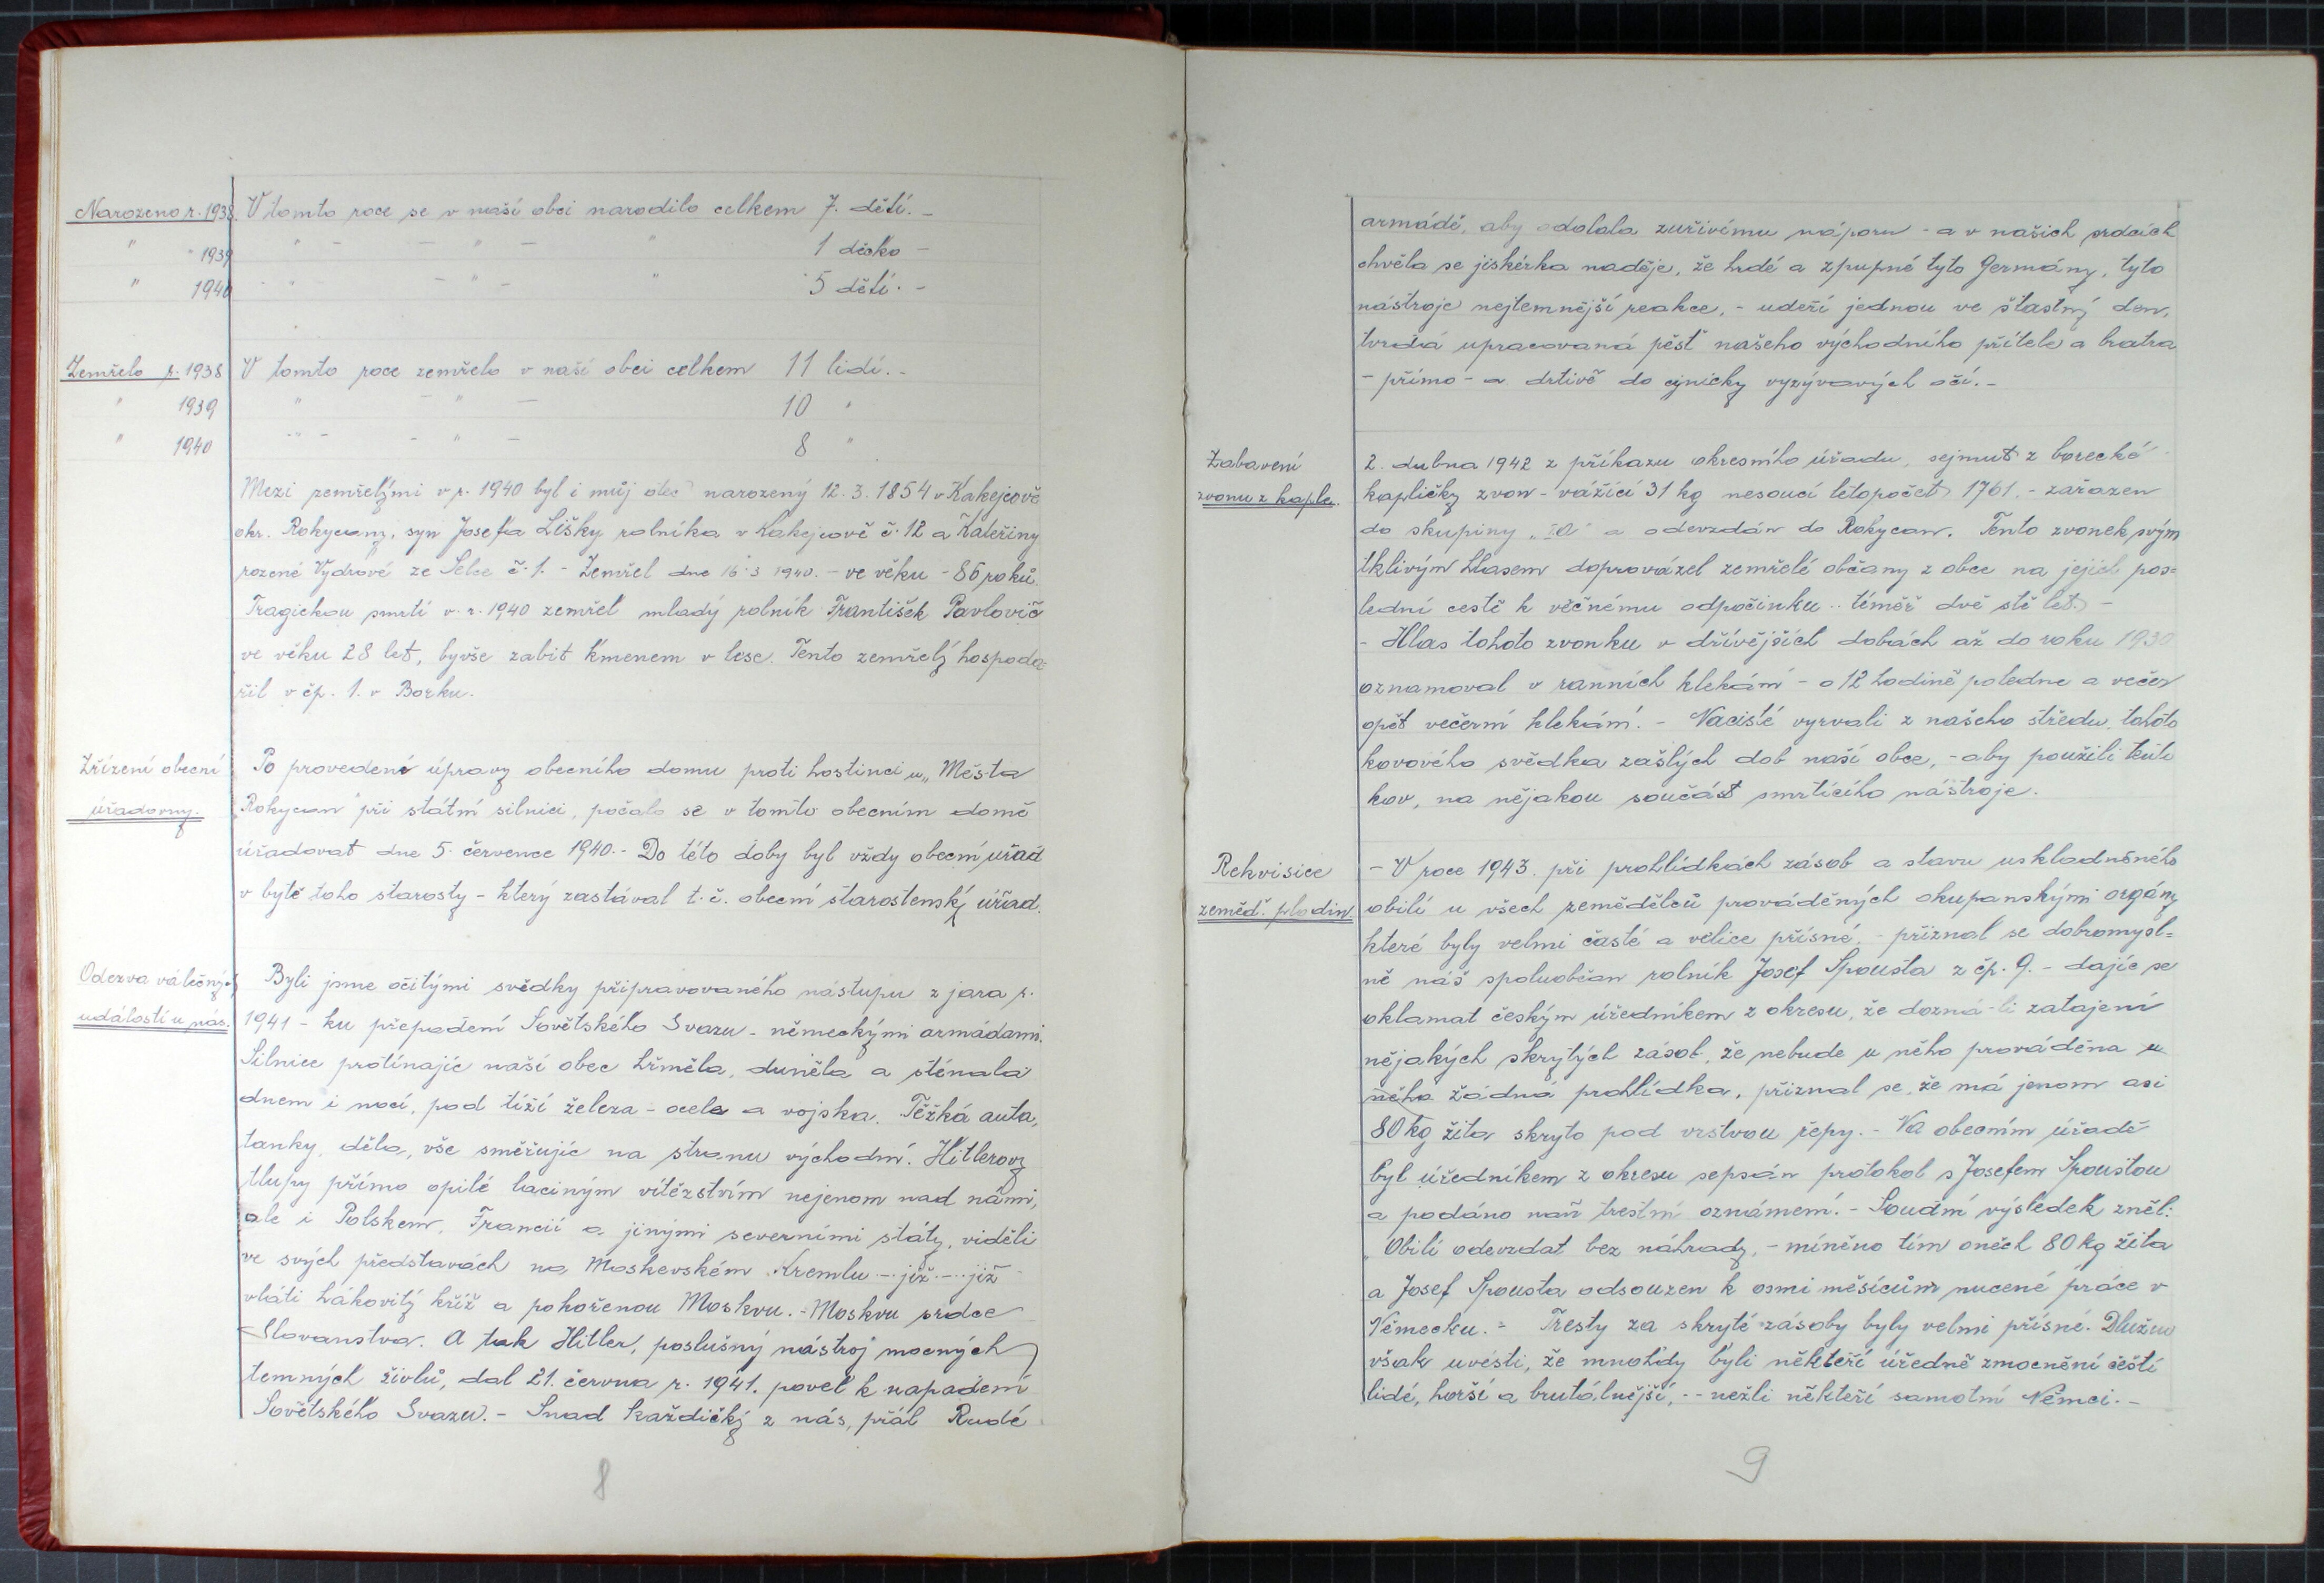 Narozeno r. 1938. V tomto roce se v naší obci narodilo celkem 7. dětí. –
" " 1939 " – – " – " 1 děcko –
" 1940 " " – " – " 5 dětí. –
Zemřelo r. 1938 V tomto roce zemřelo v naší obci celkem 11 lidí. –
" 1939 " – " – 10 "
" 1940 " – – " – 8 "
Mezi zemřelými v r. 1940 byl i můj otec narozený 12. 3. 1854 v Kakejcově
okr. Rokycany, syn Josefa Lišky rolníka v Kakejcově č. 12 a Kateřiny
rozené Vydrové ze Selce č. 1. – Zemřel dne 16. 3. 1940. – ve věku – 86 roků.
Tragickou smrtí v. r. 1940 zemřel mladý rolník František Pavlovič
ve věku 28 let, byvše zabit kmenem v lese. Tento zemřelý hospoda=
řil v čp. 1. v Borku.
Zřízení obecní
úřadovny.
Po provedení úpravy obecního domu proti hostinci u „Města
Rokycan" při státní silnici, počalo se v tomto obecním domě
úřadovat dne 5. července 1940. – Do této doby byl vždy obecní úřad
v bytě toho starosty – který zastával t. č. obecní starostenský úřad.
Odezva válečných
událostí u nás.
Byli jsme očitými svědky připravovaného nástupu z jara r.
1941 – ku přepadení Sovětského Svazu – německými armádami.
Silnice protínajíc naší obec hřměla, duněla a sténala
dnem i nocí, pod tíží železa – ocele a vojska. Těžká auta,
tanky, děla, vše směřujíc na stranu východní. Hitlerovy
tlupy přímo opilé laciným vítězstvím nejenom nad námi,
ale i Polskem, Francií a jinými severními státy, viděli
ve svých představách na Moskevském Kremlu – již – již
vláti hákovitý kříž a pokořenou Moskvu. – Moskvu srdce
Slovanstva. A tak Hitler, poslušný nástroj mocných
temných živlů, dal 21. června r. 1941. povel k napadení
Sovětského Svazu. – Snad každičký z nás, přál Rudé
8
armádě, aby odolala zuřivému náporu – a v našich srdcích
chvěla se jiskérka naděje, že hrdé a zpupné tyto Germány, tyto
nástroje nejtemnější reakce, – udeří jednou ve šťastný den,
tvrdá upracovaná pěst našeho východního přítele a bratra
– přímo – a drtivě do cynicky vyzývavých očí. –
Zabavení
zvonu z kaple.
2. dubna 1942 z příkazu okresního úřadu, sejmut z borecké
kapličky zvon – vážící 31 kg nesoucí letopočet 1761. – zařazen
do skupiny a odevzdán do Rokycan. Tento zvonek svým
tklivým hlasem doprovázel zemřelé občany z obce na jejich pos=
lední cestě k věčnému odpočinku .. téměř dvě stě let. –
– Hlas tohoto zvonku v dřívějších dobách až do roku 1930
oznamoval v ranních klekání – o 12 hodině poledne a večer
opět večerní klekání. – Nacisté vyrvali z našeho středu, tohoto
kovového svědka zašlých dob naší obce, – aby použili tento
kov, na nějakou součást smrtícího nástroje.
Rekvisice
zeměd. plodin
– V roce 1943. při prohlídkách zásob a stavu uskladněného
obilí u všech zemědělců prováděných okupanskými orgány
které byly velmi časté a velice přísné, – přiznal se dobromysl=
ně náš spoluobčan rolník Josef Spousta z čp. 9. – dajíc se
oklamat českým úředníkem z okresu, že dozná-li zatajení
nějakých skrytých zásob, že nebude u něho prováděna u
něho žádná prohlídka, přiznal se, že má jenom asi
80 kg žita skryto pod vrstvou řepy. – Na obecním úřadě
byl úředníkem z okresu sepsán protokol s Josefem Spoustou
a podáno naň trestní oznámení. – Soudní výsledek zněl:
„Obilí odevzdat bez náhrady, – míněno tím oněch 80 kg žita
a Josef Spousta odsouzen k osmi měsícům nucené práce v
Německu. – Tresty za skryté zásoby byly velmi přísné. Dlužno
však uvésti, že mnohdy byli někteří úředně zmocnění čeští
lidé, horší a brutálnější, – – nežli někteří samotní Němci. –
9